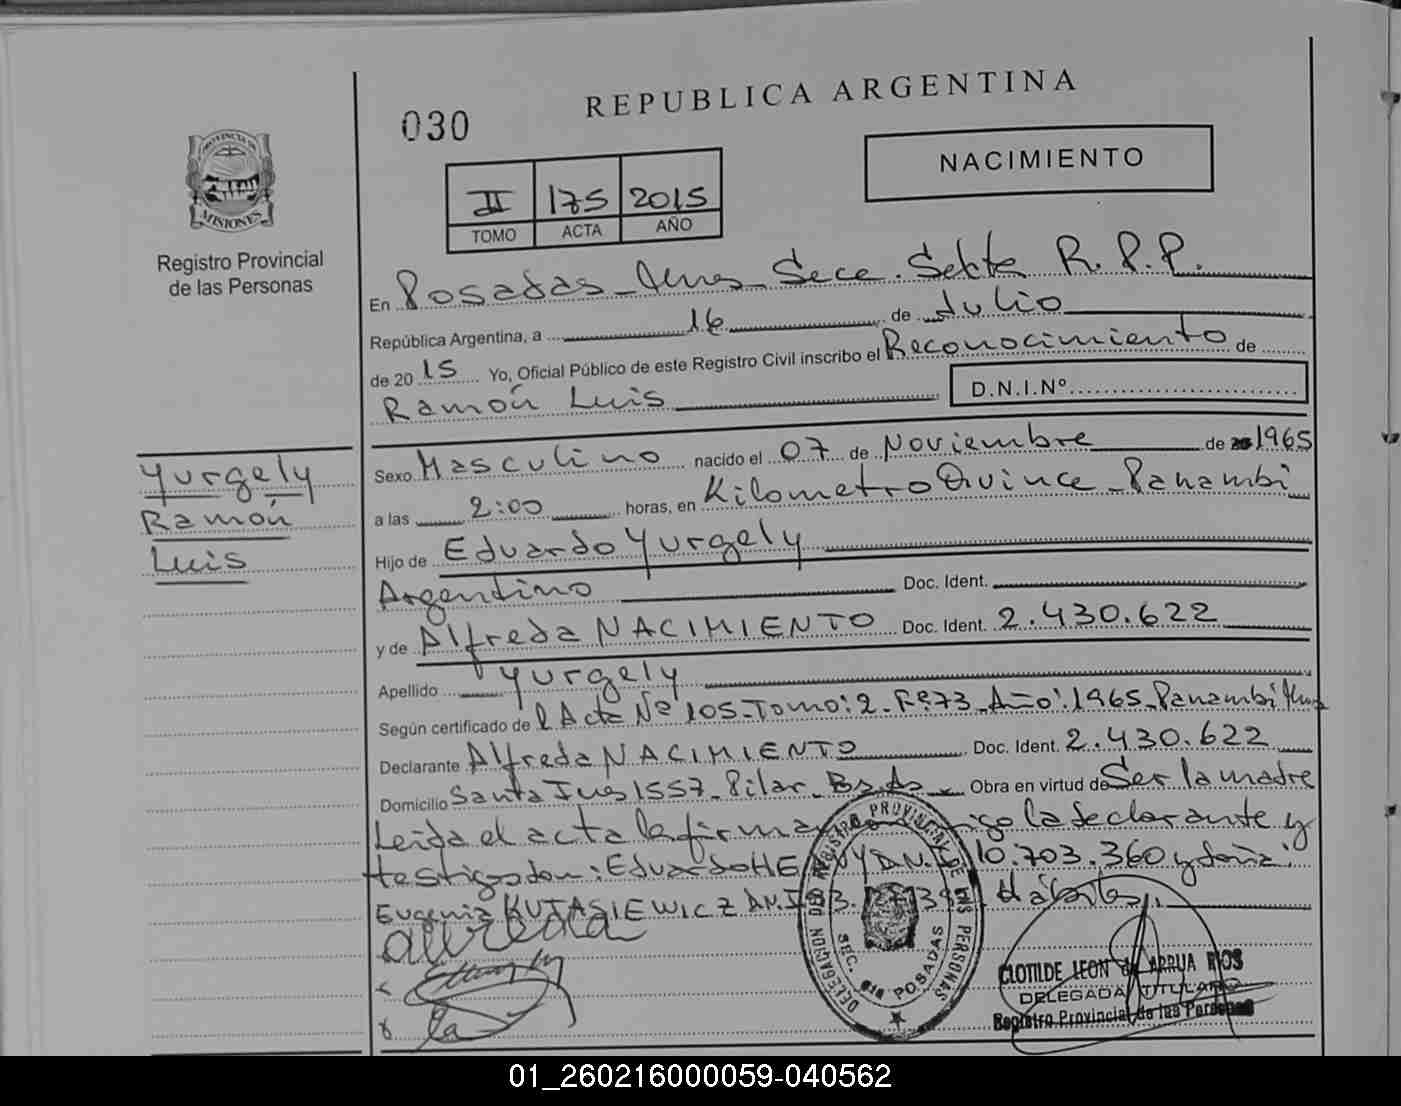 030
REPUBLICA ARGENTINA
NACIMIENTO
II 175 2015
TOMO ACTA AÑO
PROVINCIA DE
MISIONES
Registro Provincial
de las Personas
En Posadas - Mnes - Secc. Sexta R.P.P.
República Argentina, a 16 de Julio
de 2015 Yo, Oficial Público de este Registro Civil inscribo el Reconocimiento de
Ramón Luis D.N.I.Nº
Yurgely
Ramón
Luis
Sexo Masculino nacido el 07 de Noviembre de 1965
a las 2:00 horas, en Kilometro Quince - Panambi
Hijo de Eduardo Yurgely
Argentino Doc. Ident.
y de Alfreda NACIMIENTO Doc. Ident. 2.430.622
Apellido Yurgely
Según certificado del Acta Nº 105 - Tomo: 2 - Fº 73 - Año: 1965 - Panambi Mnes
Declarante Alfreda NACIMIENTO Doc. Ident. 2.430.622
Domicilio Santa Ines 1557 - Pilar - Bs. As - Obra en virtud de Ser la madre
Leida el acta la firma la declarante y
testigos don: Eduardo 10.703.360 y doña:
Eugenia KUTASIEWICZ D.N.I.
alfreda
DELEGACION DEL REGISTRO PROVINCIAL DE LAS PERSONAS
SEC. 6ta POSADAS
CLOTILDE LEON de ARRUA RIOS
DELEGADA TITULAR
Registro Provincial de las Personas
01_260216000059-040562